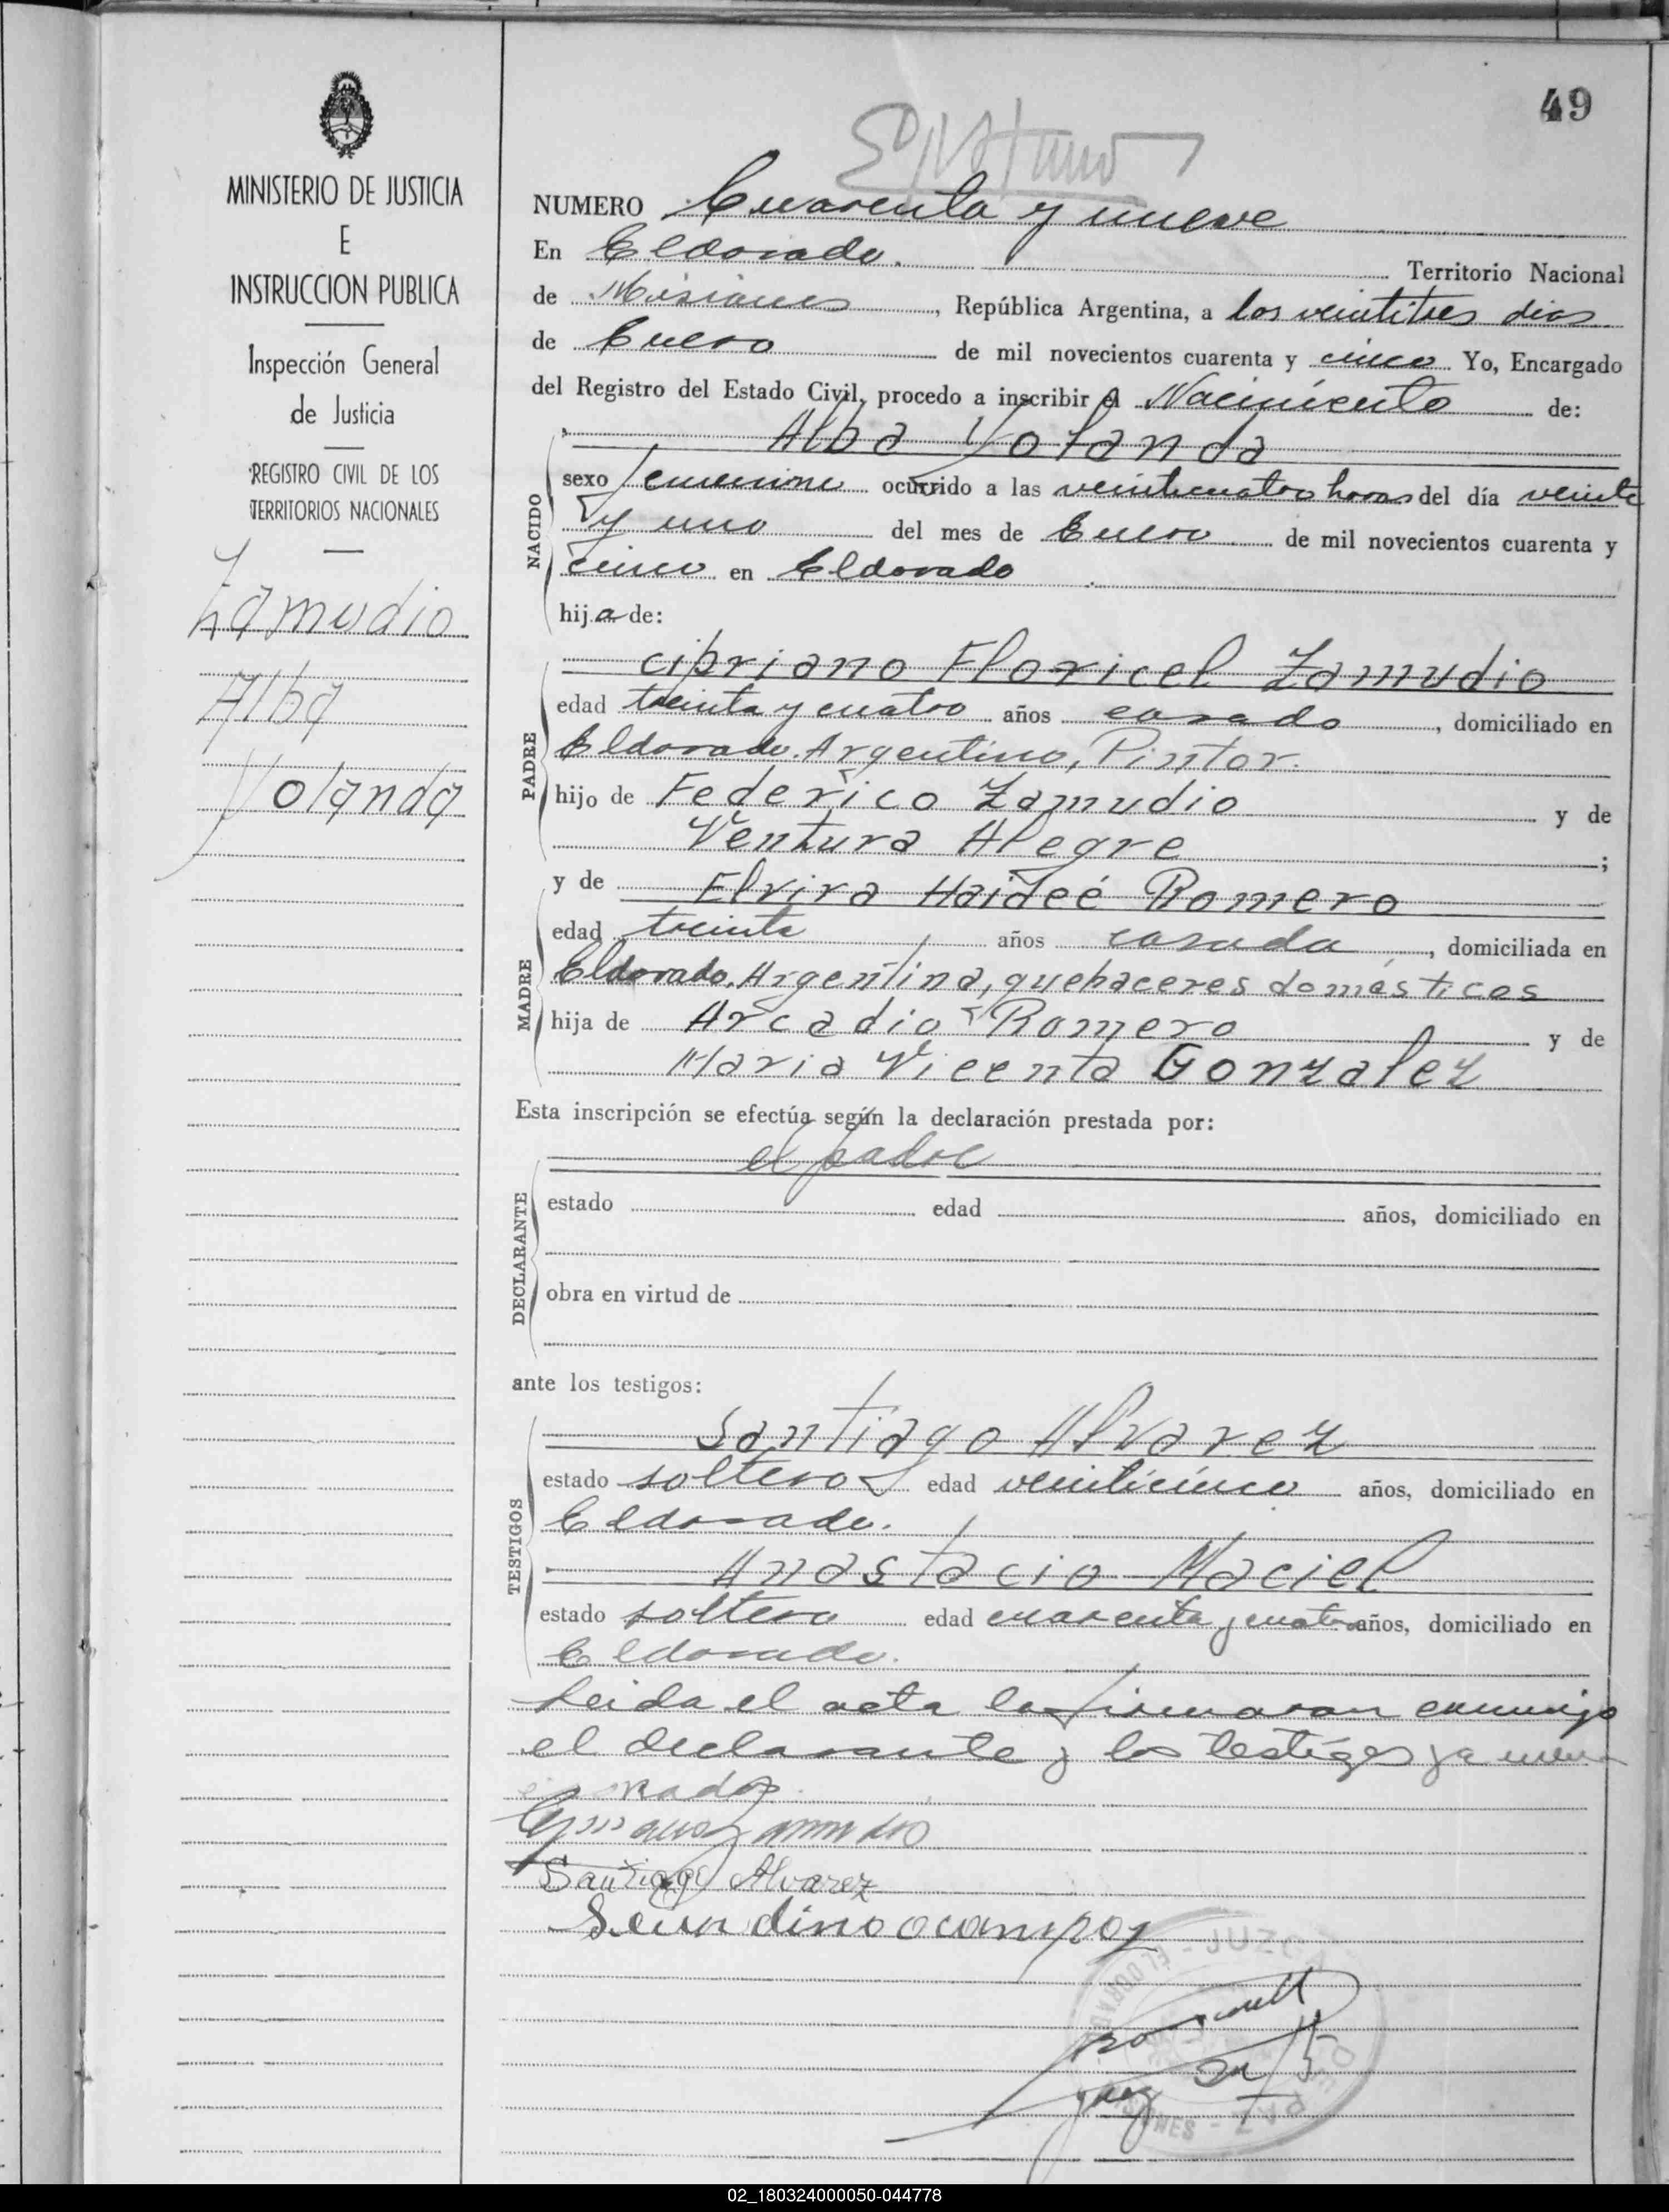 49
MINISTERIO DE JUSTICIA
E
INSTRUCCION PUBLICA
Inspección General
de Justicia
REGISTRO CIVIL DE LOS
TERRITORIOS NACIONALES
Zamudio
Alba
Yolanda
NUMERO Cuarenta y nueve
En Eldorado. Territorio Nacional
de Misiones, República Argentina, a los veintitres dias
de Enero de mil novecientos cuarenta y cinco Yo, Encargado
del Registro del Estado Civil, procedo a inscribir el Nacimiento de:
Alba Yolanda
NACIDO
sexo femenino ocurrido a las veinticuatro horas del día veinte
y uno del mes de Enero de mil novecientos cuarenta y
cinco en Eldorado
hija de:
PADRE
Cipriano Floricel Zamudio
edad treinta y cuatro años casado, domiciliado en
Eldorado. Argentino, Pintor.
hijo de Federico Zamudio y de
Ventura Alegre;
MADRE
y de Elvira Haideé Romero
edad treinta años casada, domiciliada en
Eldorado. Argentina, quehaceres domésticos
hija de Arcadio Romero y de
Maria Vicenta Gonzalez
Esta inscripción se efectúa según la declaración prestada por:
DECLARANTE
el padre
estado edad años, domiciliado en
obra en virtud de
ante los testigos:
TESTIGOS
Santiago Alvarez
estado soltero edad veinticinco años, domiciliado en
Eldorado.
Anastacio Maciel
estado soltero edad cuarenta y cuatro años, domiciliado en
Eldorado.
Leida el acta la firmaron conmigo
el declarante y los testigos ya
Santiago Alvarez
ocampoz
JUZG
ELDORADO
DE PAZ
MISIONES
juez
02_180324000050-044778